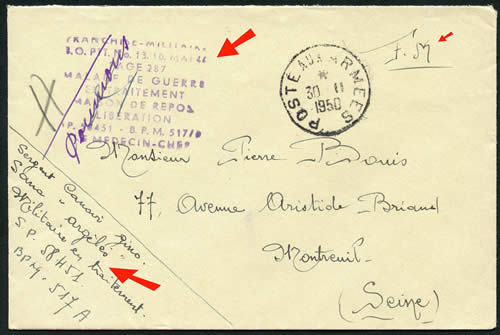 FRANCHISE-MILITAIRE
B.O. PTT. No 13. 10. MAI
PAGE 287
MALADE DE GUERRE
EN TRAITEMENT
MAISON DE REPOS
LIBERATION
S.P. 58451 - B.P.M. 517/
LE MEDECIN-CHEF
POSTE AUX ARMEES
*
30 11
1950
F. M
Monsieur Pierre Bonis
77, Avenue Aristide Briand
Montreuil
(Seine)
Sergent Canavi Gino.
Sana "Argeles"
Militaire en traitement.
S.P. 58451
BPM. 517 A